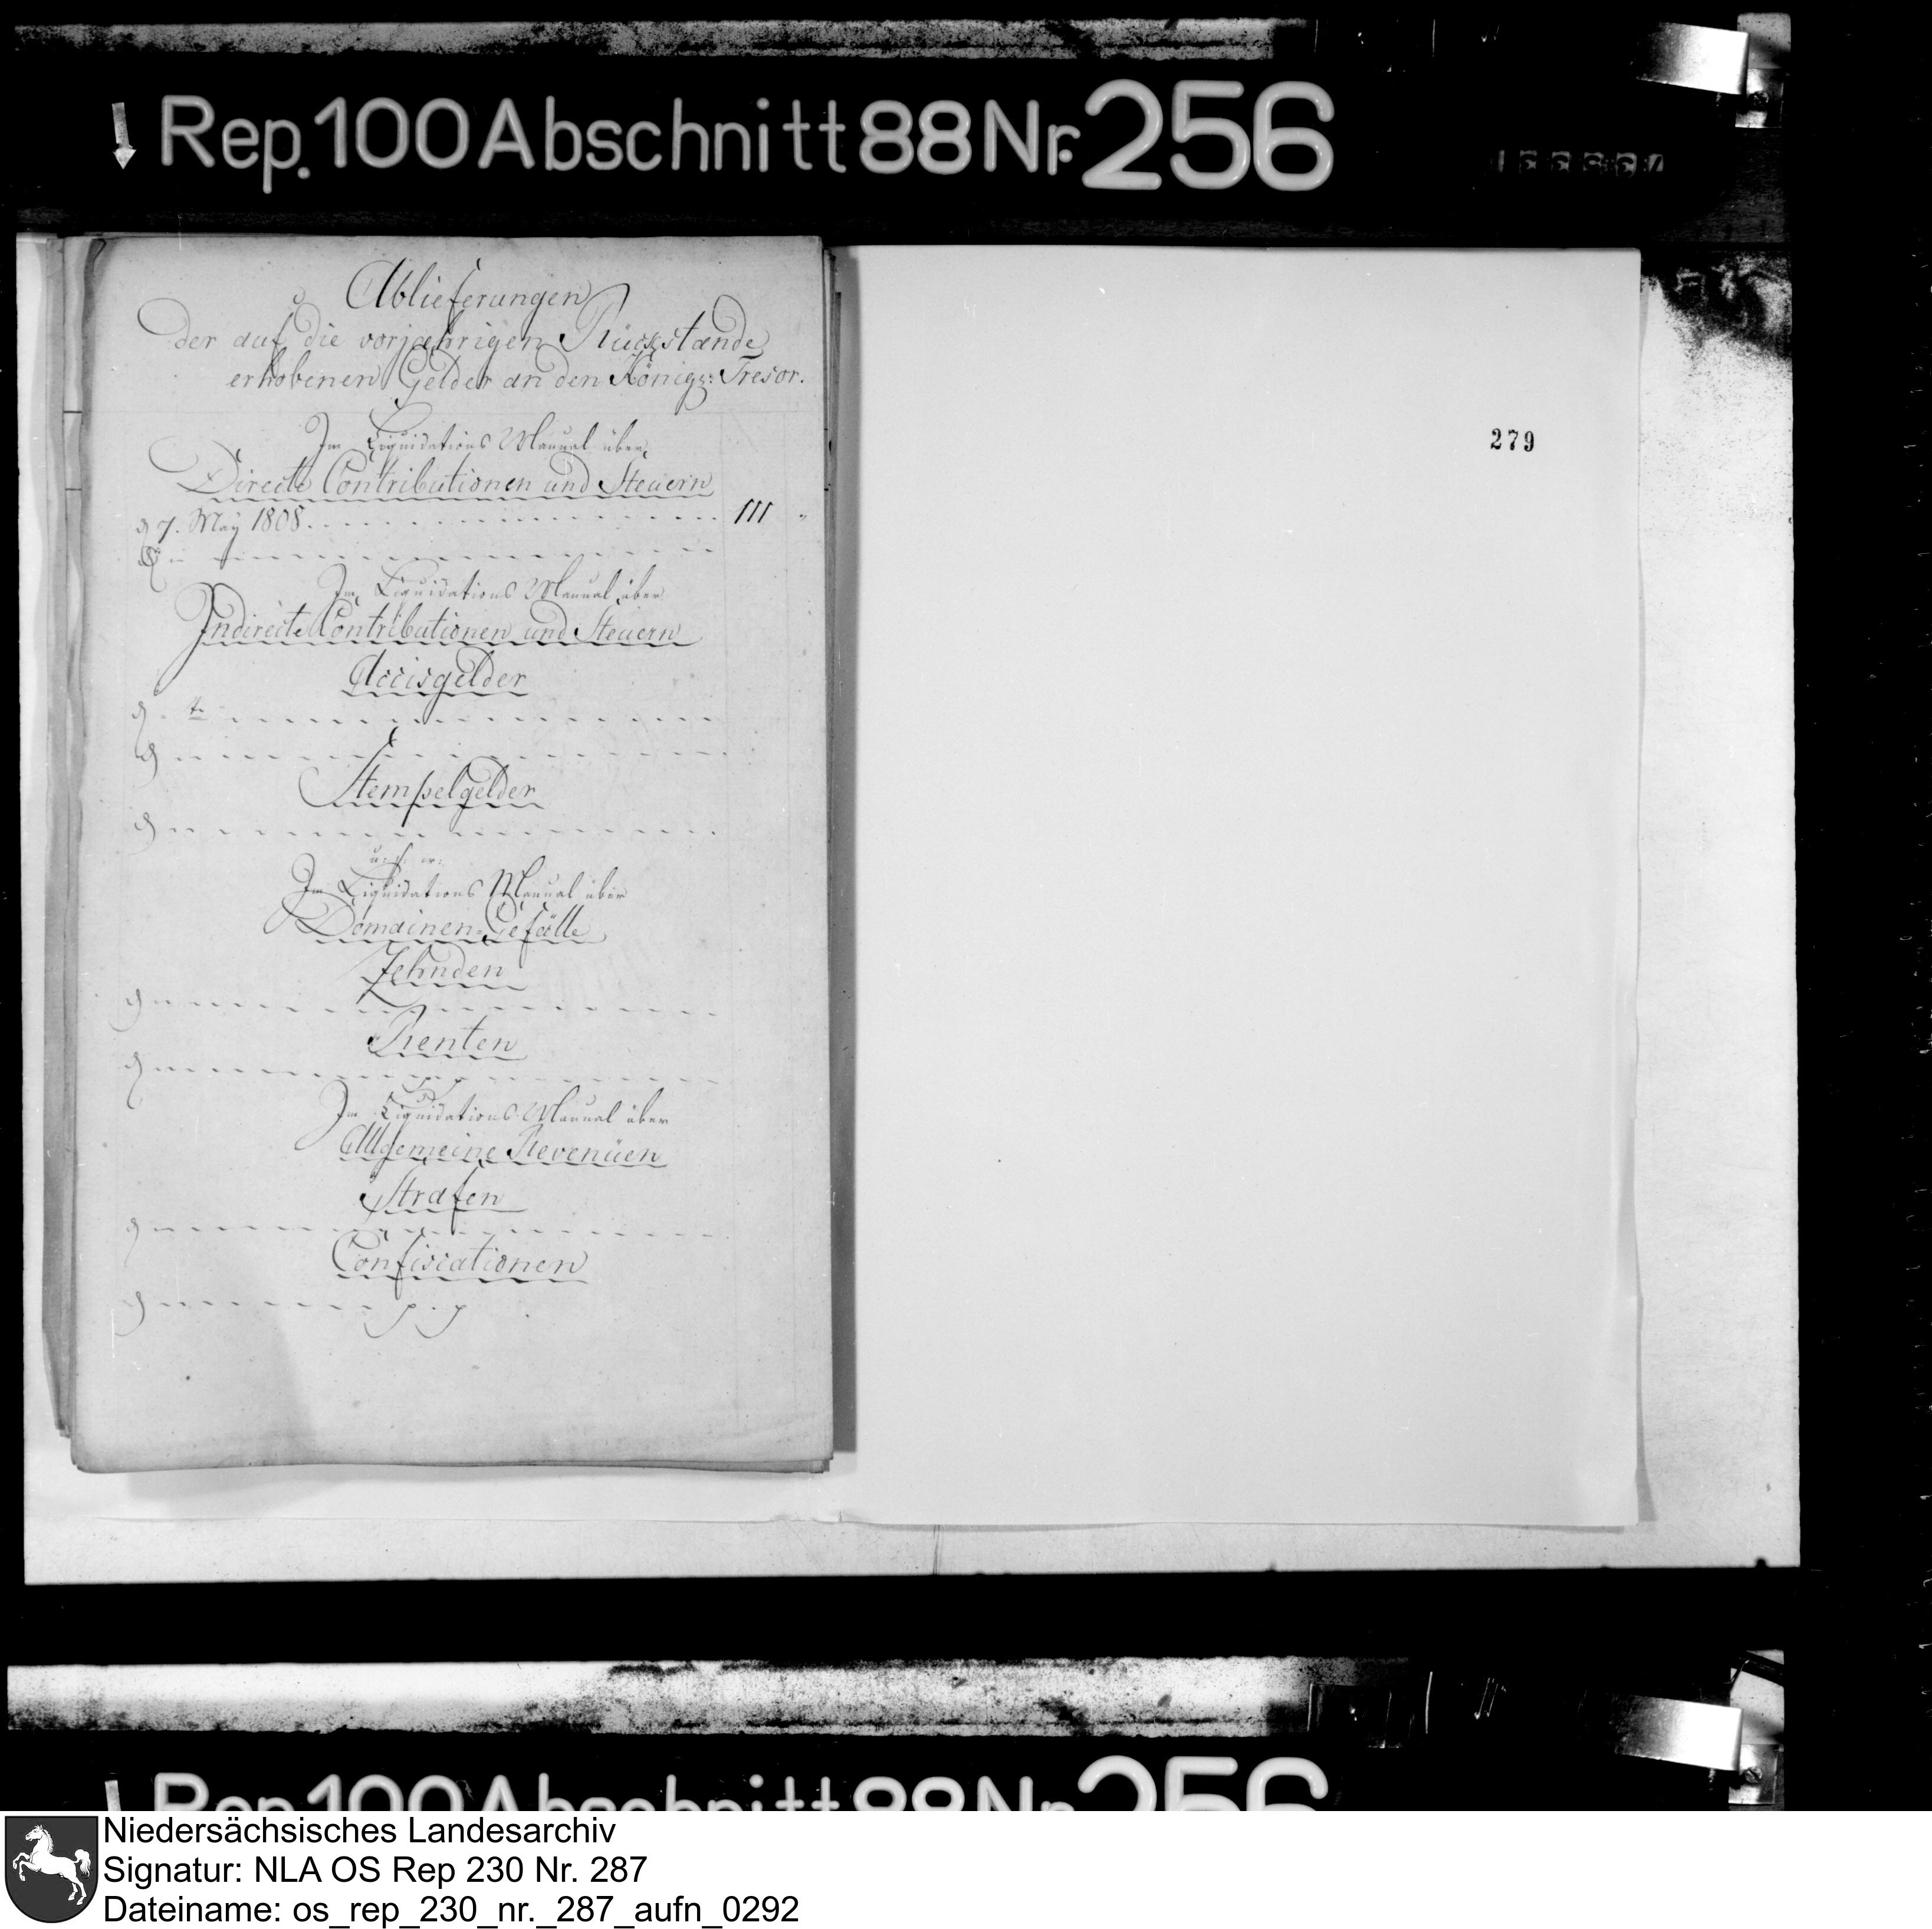 Rep. 100 Abschnitt 88 Nr. 256
Ablieferungen
der auf die vorjæhrigen Rückstænde
erhobenen Gelder an den Königs: Tresor.
Im Liquidations Manual über
Directe Contributionen und Steuern
d 7. May 1808. 111 "
Im Liquidations Manual über
Indirecte Contributionen und Steuern
Accisgelder
Stempelgelder
u: s: w:
Im Liquidations Manual über
Domainen-Gefälle
Zehnden
Renten
Im Liquidations Manual über
Allgemeine Revenüen
Strafen
Confiscationen
p. p
279
Rep. 100 Abschnitt 88 Nr. 256
Niedersächsisches Landesarchiv
Signatur: NLA OS Rep 230 Nr. 287
Dateiname: os_rep_230_nr._287_aufn_0292